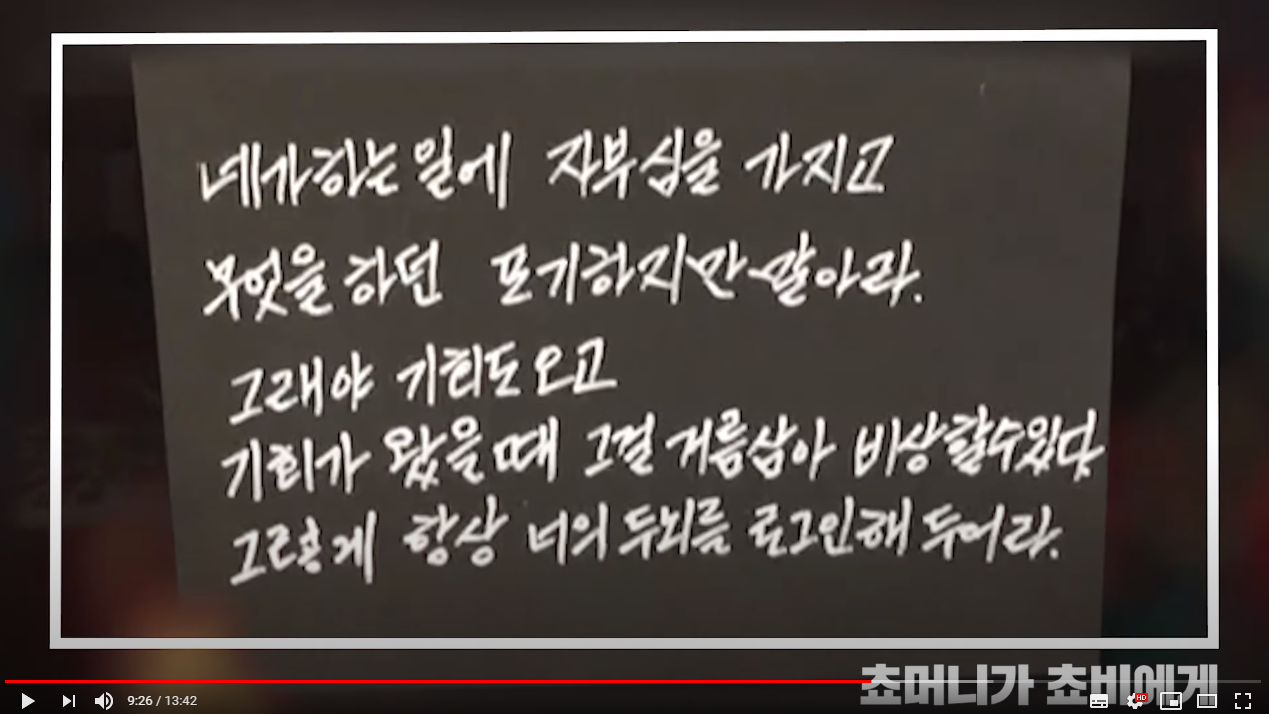 네가하는 일에 자부심을 가지고
무엇을 하던 포기하지만 말아라.
그래야 기회도 오고
기회가 왔을때 그걸 거름삼아 비상할수있다
그렇게 항상 너의 두뇌를 로그인해 두어라.
쵸머니가 쵸비에게
9:26 / 13:42
HD